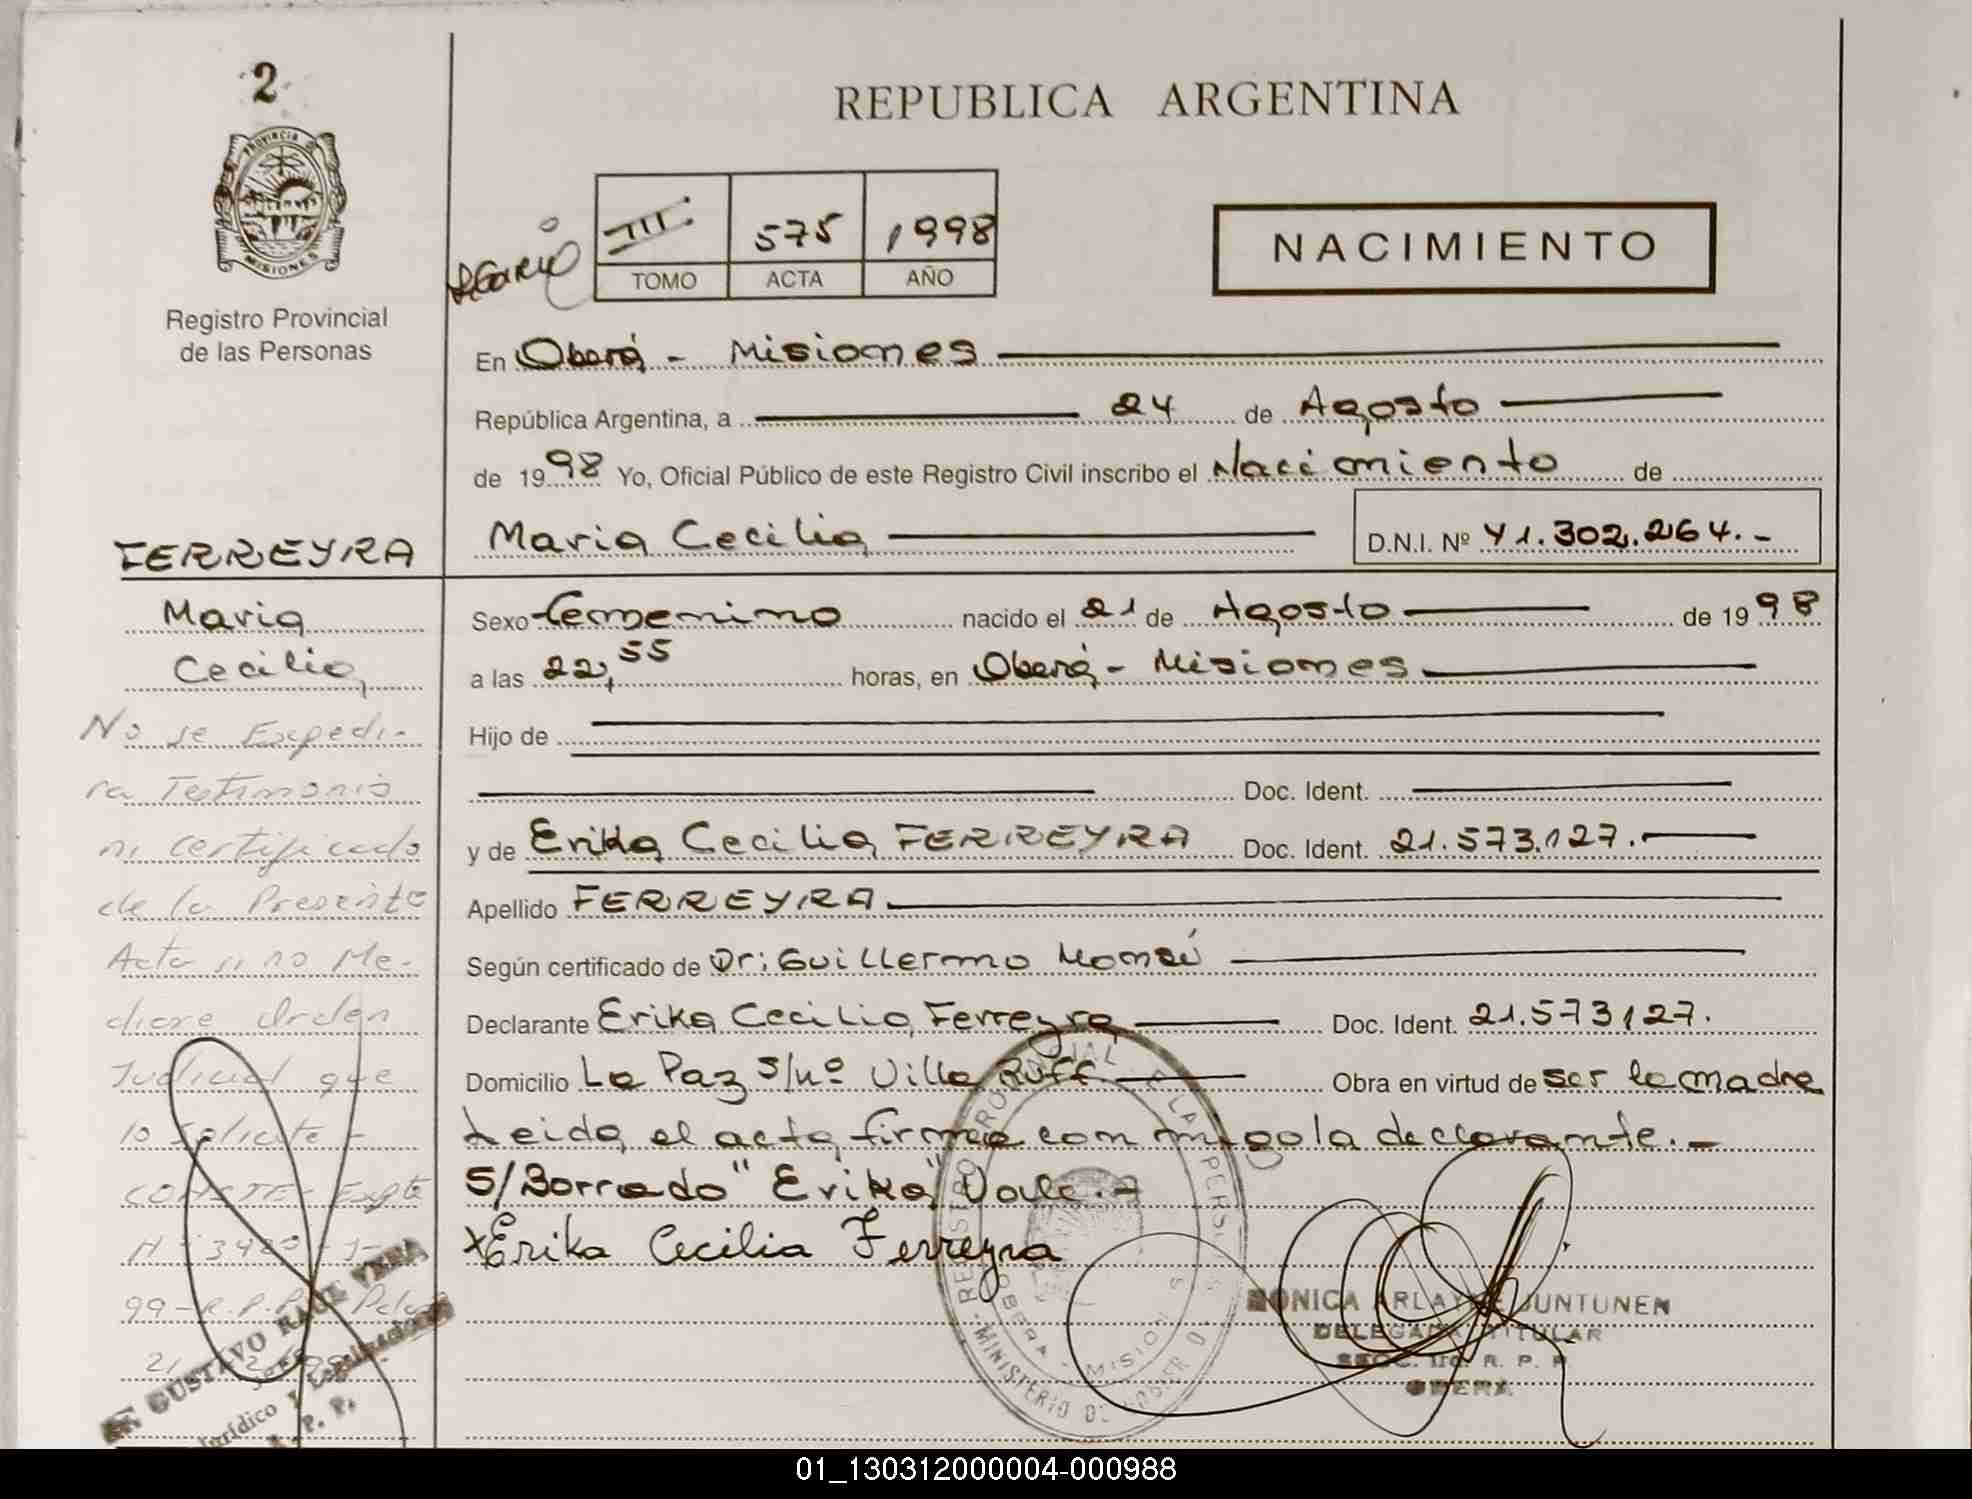 2
PROVINCIA DE
MISIONES
Registro Provincial
de las Personas
REPUBLICA ARGENTINA
III 575 1998
TOMO ACTA AÑO
NACIMIENTO
En Oberá - Misiones
República Argentina, a 24 de Agosto
de 1998 Yo, Oficial Público de este Registro Civil inscribo el Nacimiento de
Maria Cecilia D.N.I. Nº 41.302.264.-
FERREYRA
Maria
Cecilia
Sexo femenino nacido el 21 de Agosto de 1998
a las 22,55 horas, en Oberá - Misiones
Hijo de
Doc. Ident.
y de Erika Cecilia FERREYRA Doc. Ident. 21.573.127.
Apellido FERREYRA
Según certificado de Dr: Guillermo
Declarante Erika Cecilia Ferreyra Doc. Ident. 21.573127.
Domicilio La Paz S/Nº Villa Ruff Obra en virtud de ser la madre
Leida el acta firma con migo la declarante.-
S/Borrado "Erika" Vale.-
x Erika Cecilia Ferreyra
No se Expedi-
ra Testimonio
ni certificado
de la Presente
Acta si no Me-
diare Orden
Judicial que
lo solicite -
CONSTE - Expte
99 - R.P.P.
GUSTAVO RAUL VERA
Jurídico y Legalizaciones
R. P. P.
REGISTRO PROVINCIAL DE LAS PERSONAS
MINISTERIO DE GOBIERNO
OBERA - MISIONES
MONICA ARLAYNE JUNTUNEN
DELEGADA TITULAR
SECC. 1ra. R. P. P.
OBERÁ
01_130312000004-000988